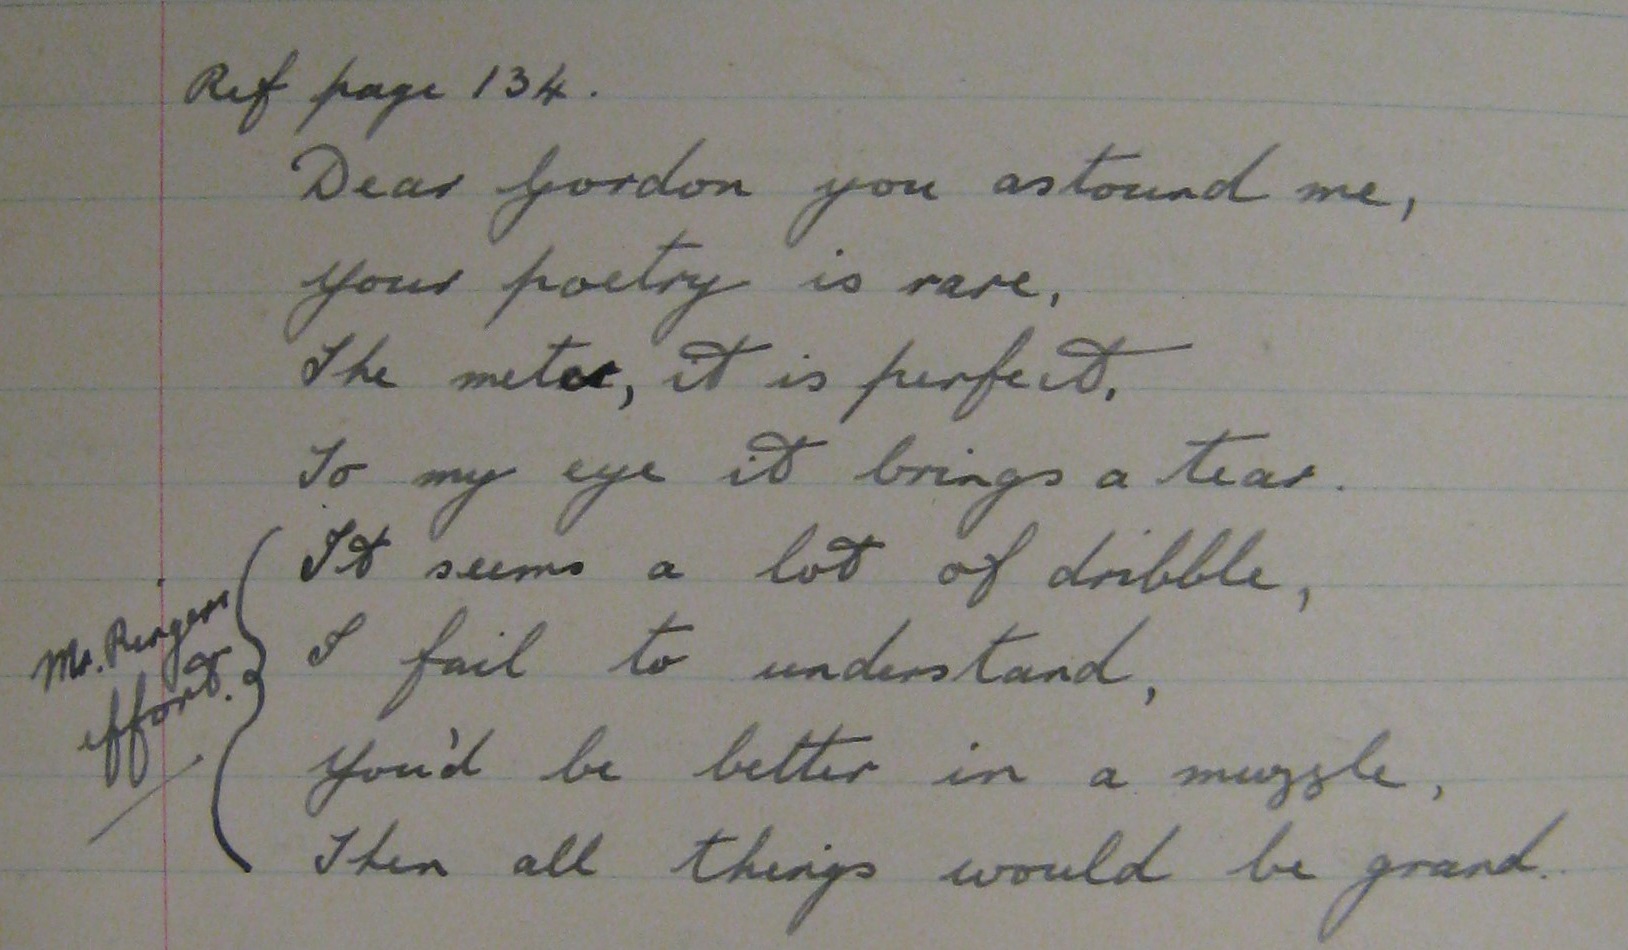 Ref page 134.
Dear Gordon you astound me,
your poetry is rare,
The meter, it is perfect.
To my eye it brings a tear.
It seems a lot of dribble,
I fail to understand,
You'd be better in a muzzle,
Then all things would be grand.
Mr. Ringers
effort.